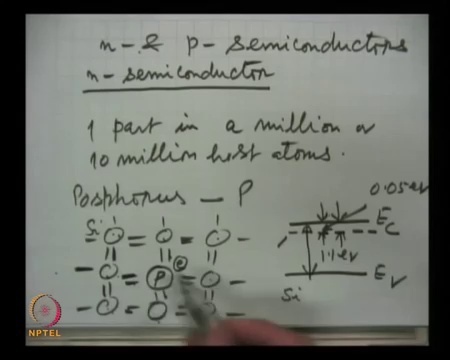 n- & p- semiconductors
n- semiconductor
1 part in a million or
10 million host atoms.
Posphorus — P
0.05 eV
Si
Ec
P
e
1.1 eV
Ev
Si
NPTEL